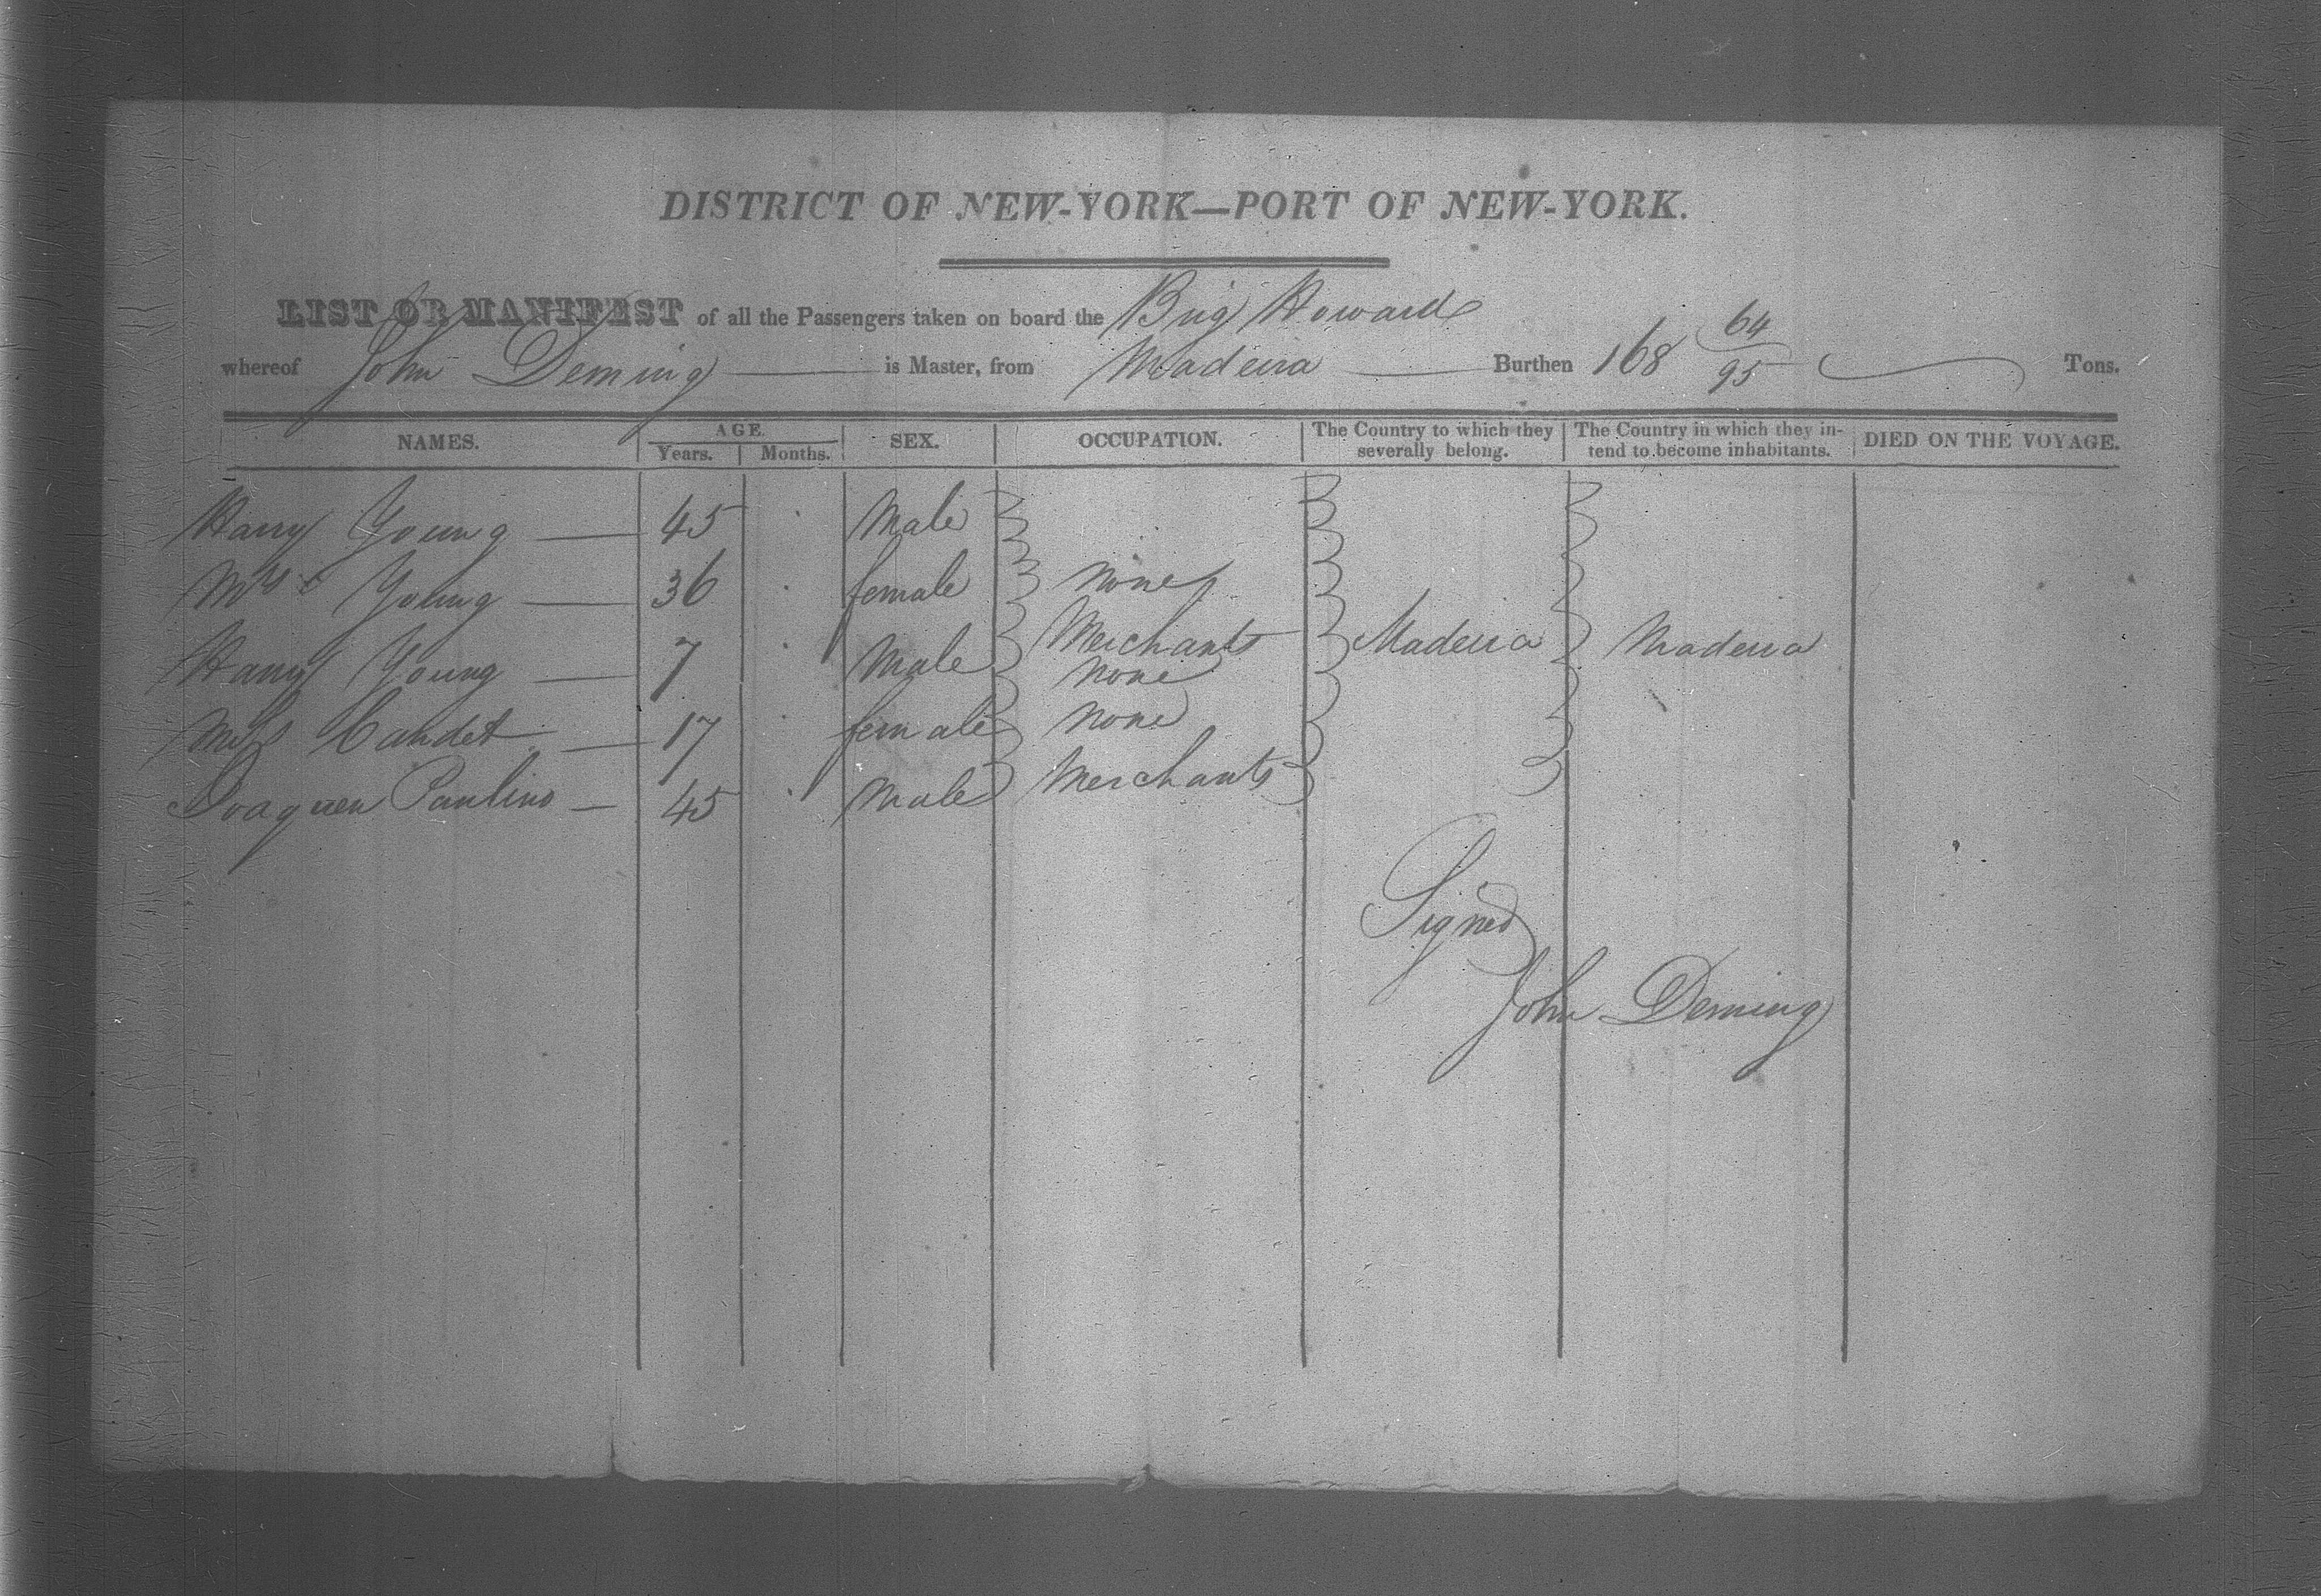 DISTRICT OF NEW-YORK—PORT OF NEW-YORK.
LIST OR MANIFEST of all the Passengers taken on board the Brig Howard
whereof John Deming is Master, from Madeira Burthen 168 64/95 Tons.
NAMES. AGE. Years. Months. SEX. OCCUPATION. The Country to which they severally belong. The Country in which they intend to become inhabitants. DIED ON THE VOYAGE.
Harry Young — 45 Male
Mrs Young — 36 female none
Merchants Madeira Madeira
Harry Young — 7 Male none
Miss 17 female none
Joaquen Paulino — 45 Male Merchants
Signed
John Deming